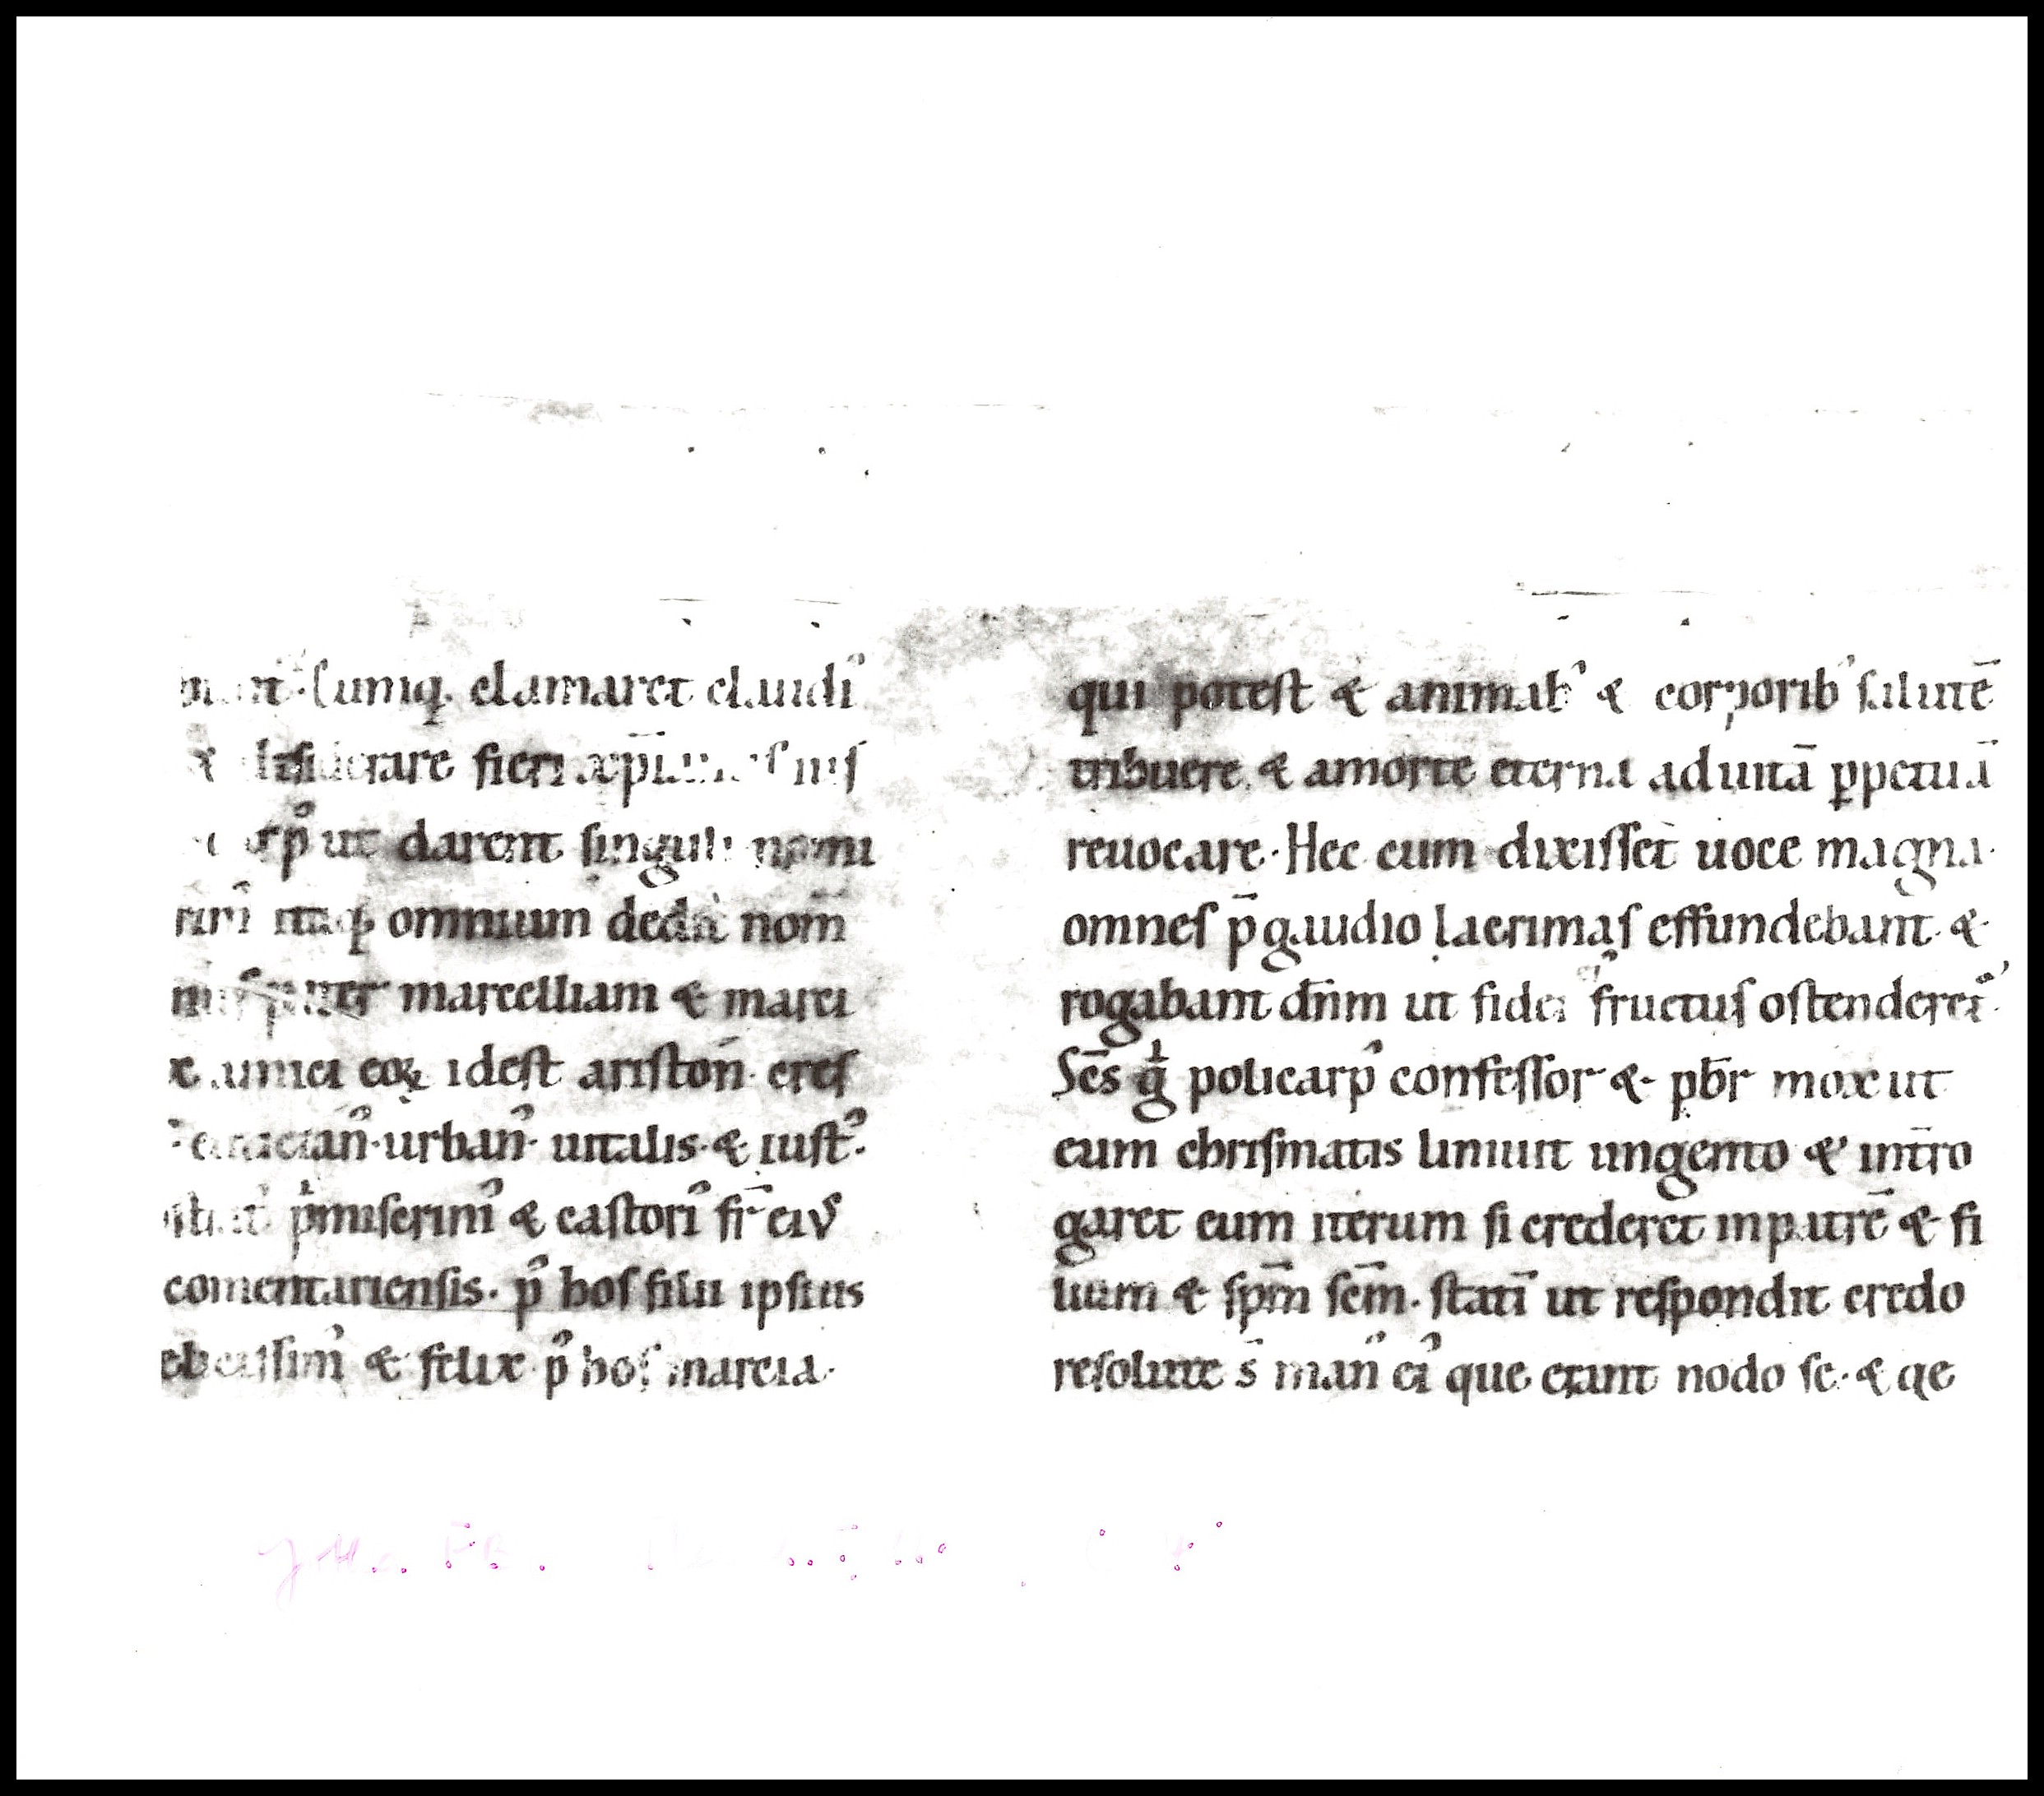 Cumq. clamaret claudi᾿
fieri
ut darent singuli nomi
itaq; omnium dedit nom̄
marcelliani & marci
amici eoꝝ idest ariston̄. cres
urban᾿. uitalis. & iust᾿.
miserini᾿ & castori᾿ fr̄ ei᾿
comentariensis. p᾿ hos filii ipsius
& felix p᾿ hos marcia.
qui potest & animab᾿ & corporib᾿ salutē
tribuere. & amorte eterna aduitā ꝑpetuā
reuocare. Hec cum dixisset uoce magna.
omnes p̄ gaudio lacrimas effundebant. &
rogabant dn̄m ut fidei fructus ostenderet᾿.
Sc̄s gͥ policarp᾿ confessor & pb̄r mox ut
eum chrismatis liniuit ungento & int̄ro
garet eum iterum si crederet inpatrē & fi
lium & sp̄m sc̄m. statī ut respondit credo
resolute s̄ man᾿ ei᾿ que erant nodo se. & qe